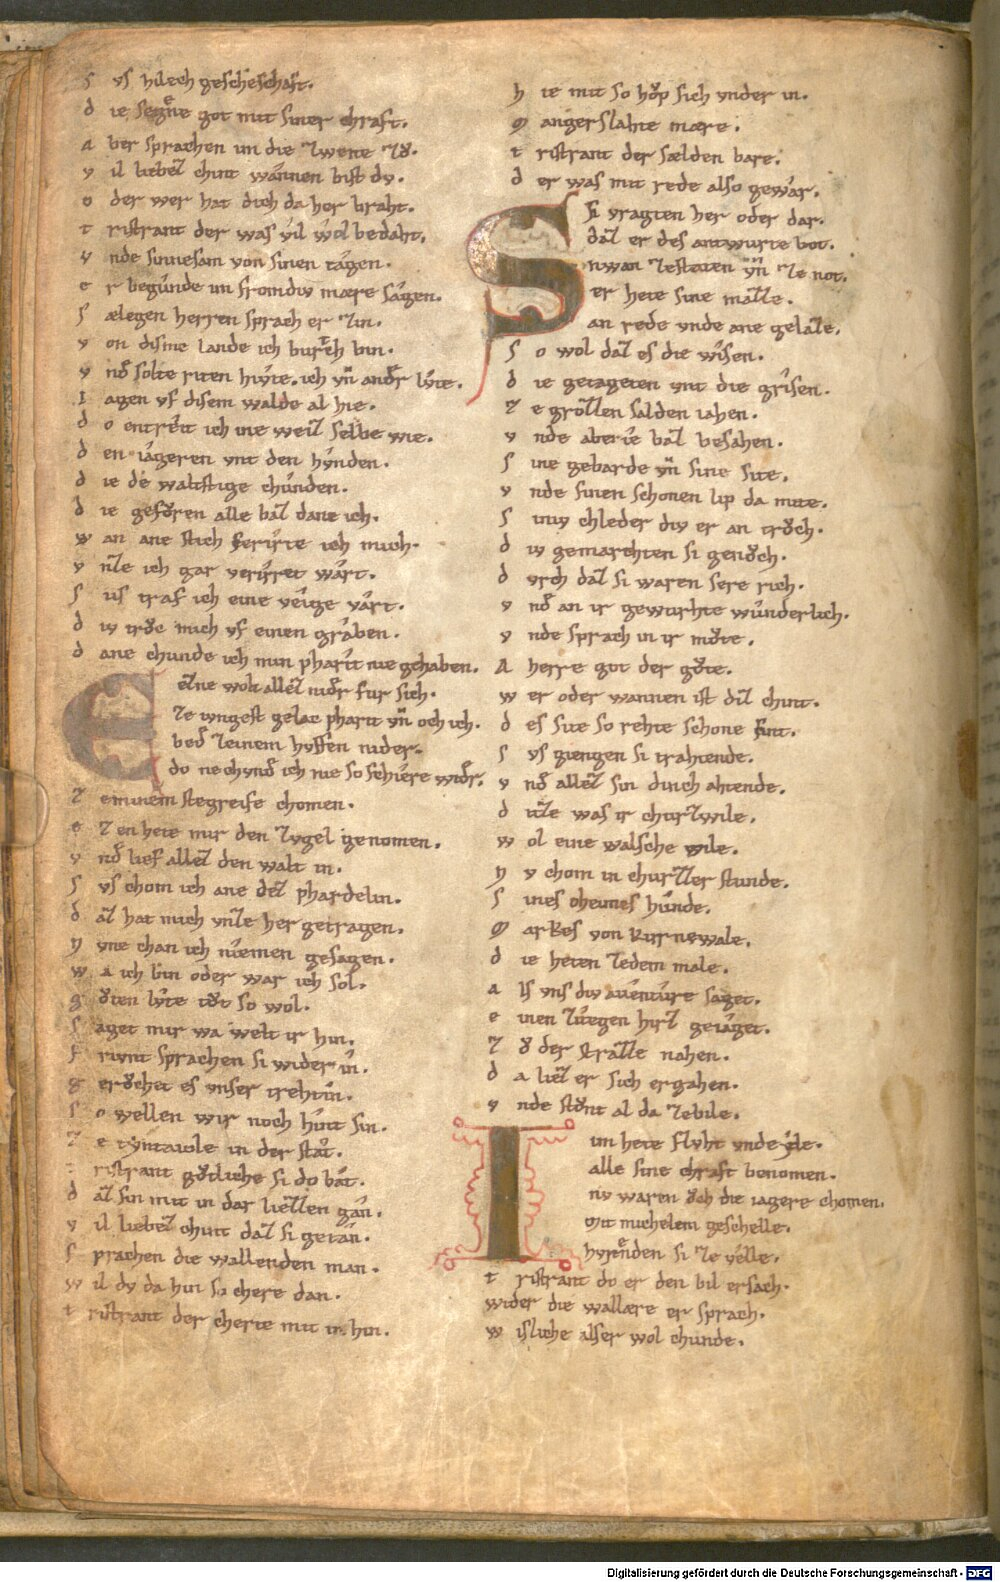 s vs hilech gescheschaft.
d ie segene got mit siner chraft.
a ber sprachen im die zwene zů.
v il liebez chint wannen bist dv.
o der wer hat dich da her braht.
t ristrant der was vil wol bedaht.
v nde sinnesam von sinen tagen.
e r begunde im fromdiv mære sagen.
s ælegen herren sprach er zin.
v on disme lande ich burtch bin.
v nd solte riten hivte. ich vñ ander lvte.
I agen vf disem walde al hie.
d o entreit ich ine weiz selbe wie.
d en iageren vnt den hvnden.
d ie de waltstige chunden.
d ie gefůren alle baz dane ich.
w an ane stich ferirte ich mich.
v nze ich gar verirret wart.
s us traf ich eine veige vart.
d iv trůc mich vf einen graben.
d ane chunde ich min pharit nie gehaben.
E ezne wolt allez nider fur sich.
ze ivngest gelac pharit vñ och ich.
bed zeinem hvffen nider.
do nechvnd ich nie so schiere wider.
z eminem stegreife chomen.
e z en hete mir den zvgel genomen.
v nd lief allez den walt in.
s vs chom ich ane dez phardelin.
d az hat mich vnze her getragen.
n vne chan ich niemen gesagen.
w a ich bin oder war ich sol.
g ůten lvte tůt so wol.
s aget mir wa welt ir hin.
f rivnt sprachen si wider in.
g erůchet es vnser trehtin.
s o wellen wir noch hint sin.
z e tyntaiole in der stat.
t ristrant gůtliche si do bat.
d az sin mit in dar liezzen gan.
v il liebez chint daz si getan.
s prachen die wallenden man.
w il dv da hin so chere dan.
t ristrant der cherte mit in hin.
h ie mit so hůp sich vnder in.
M angerslahte mære.
t ristrant der sælden bare.
d er was mit rede also gewar.
S si vragten her oder dar.
daz er des antwurte bot.
niwan zestaten vñ ze not.
er hete sine mazze.
an rede vnde ane gelaze.
s o wol daz es die wisen.
d ie getageten vnt die grisen.
z e grozzen salden iahen.
v nde aberie baz besahen.
s ine gebarde vñ sine site.
v nde sinen schonen lip da mite.
s iniv chleder div er an trůch.
d iv gemarchten si genůch.
d vrch daz si waren sere rich.
v nd an ir gewurhte wunderlich.
v nde sprach in ir můte.
A herre got der gůte.
w er oder wannen ist diz chint.
d es site so rehte schone sint.
s vs giengen si trahtende.
v nd allez sin dinch ahtende.
d itze was ir churzwile.
w ol eine walsche wile.
n v chom in churzzer stunde.
s ines oheimes hunde.
M arkes von kurnewale.
d ie heten zedem male.
a ls vns div aventure saget.
e inen ziegen hirz geiaget.
z ů der strazze nahen.
d a liez er sich ergahen.
v nde stůnt al da zebile.
I im hete flvht vnde ile.
alle sine chraft benomen.
niv waren ůch die iagere chomen.
mit michelem geschelle.
hvrnenden si ze velle.
t ristrant do er den bil ersach.
wider die wallære er sprach.
w isliche alser wol chunde.
Digitalisierung gefördert durch die Deutsche Forschungsgemeinschaft - DFG